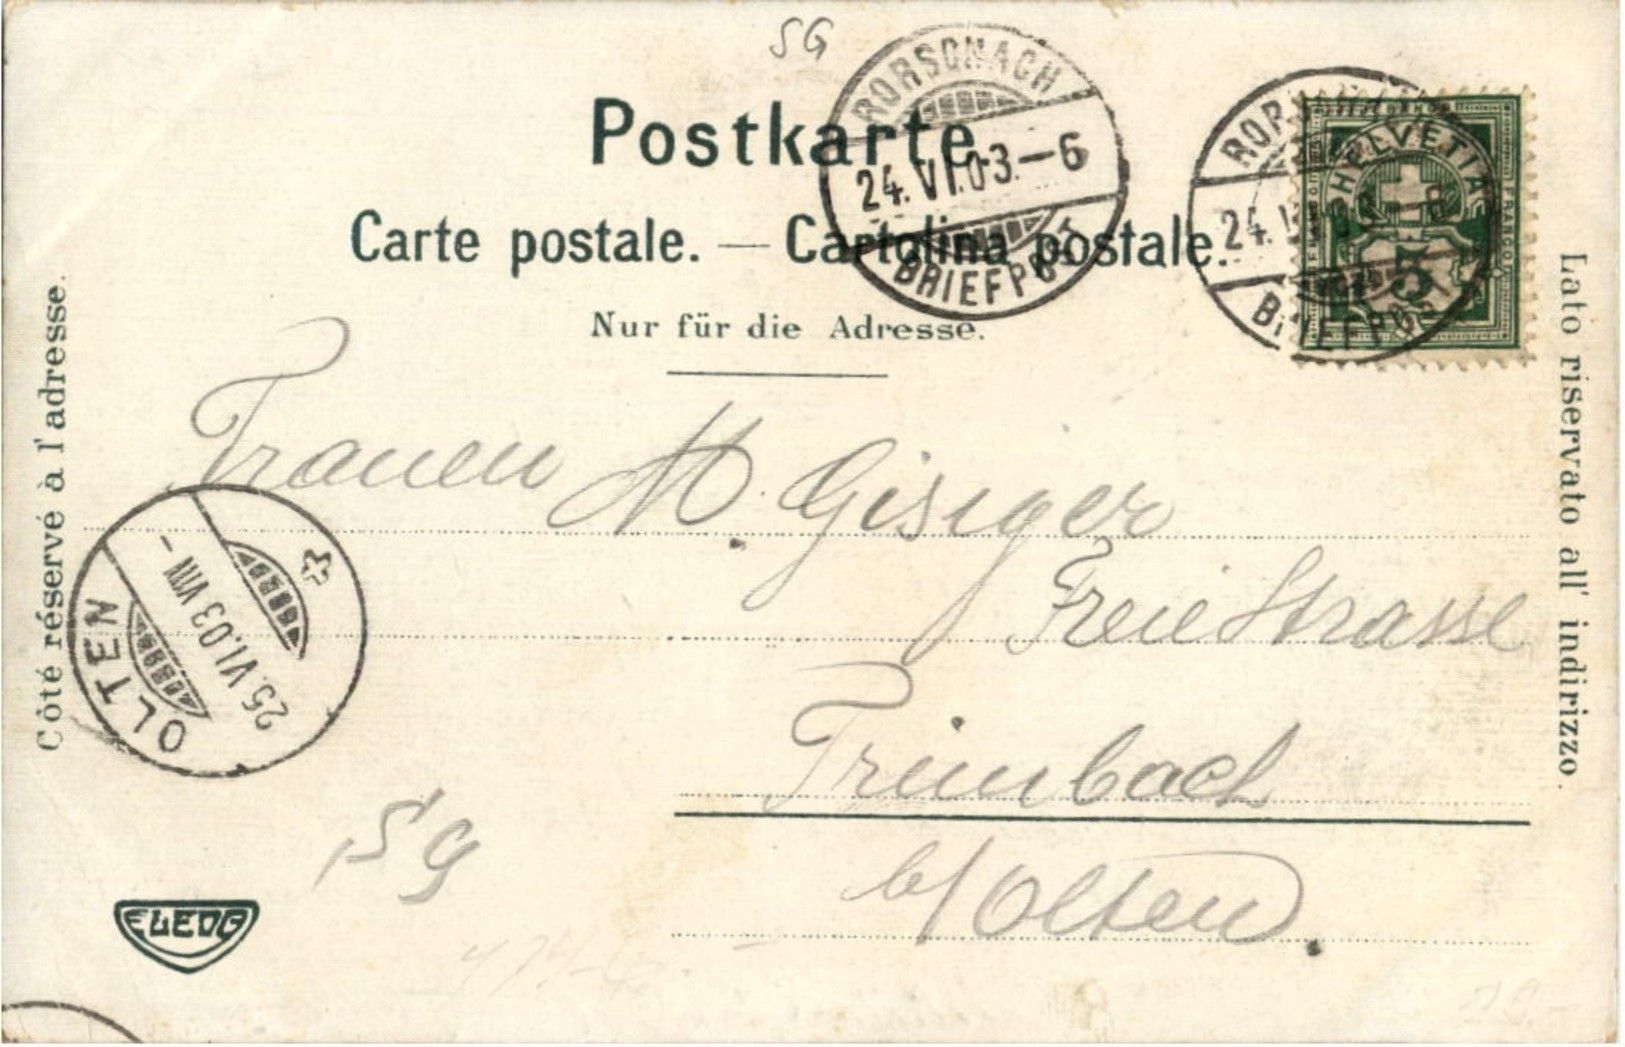 SG
Postkarte.
Carte postale. — Cartolina postale.
Nur für die Adresse.
RORSCHACH
24.VI.03.—6
BRIEFPOST
24.
HELVETIA
FRANCO
5
Côté réservé à l'adresse.
Lato riservato all' indirizzo.
Frauen M. Gisiger
Freie Strasse
Trimbach
b/Olten.
OLTEN
25.VI.03 VIII –
SG
ELEDG